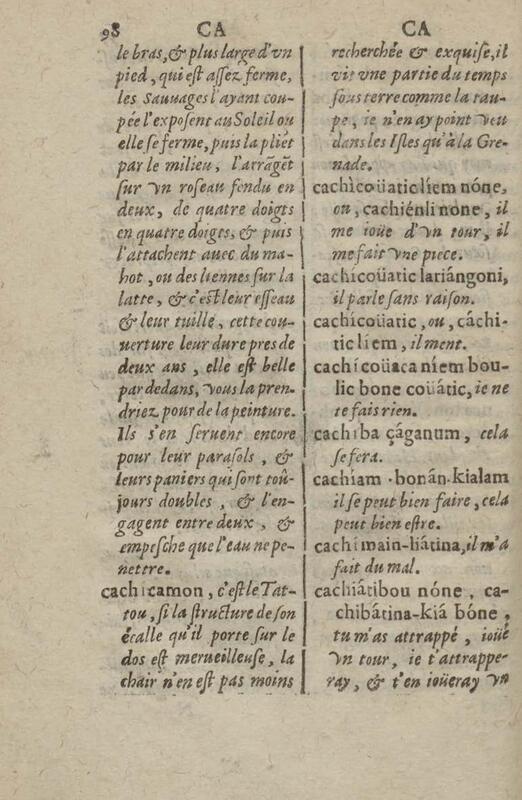 98 CA CA
le bras, & plus large d'vn
pied, qui est assez ferme,
les Sauuages l'ayant cou-
pée l'exposent au Soleil ou
elle se ferme, puis la pliẽt
par le milieu, l'arrãgẽt
sur vn roseau fendu en
deux, de quatre doigts
en quatre doigts, & puis
l'attachent auec du ma-
hot, ou des liennes sur la
latte, & c'est leur esseau
& leur tuille, cette cou-
uerture leur dure pres de
deux ans, elle est belle
par dedans, vous la pren-
driez pour de la peinture.
Ils s'en seruent encore
pour leur parasols, &
leurs paniers qui sont toû-
jours doubles, & l'en-
gagent entre deux, &
empesche que l'eau ne pe-
nettre.
cachicamon, c'est le Tat-
tou, si la structure de son
écalle qu'il porte sur le
dos est merueilleuse, la
chair n'en est pas moins
recherchée & exquise, il
vit vne partie du temps
sous terre comme la tau-
pe, ie n'en ay point veu
dans les Isles qu'à la Gre-
nade.
cachìcoüatic líem nóne,
ou, cachiénli none, il
me ioüe d'vn tour, il
me fait vne piece.
cachícoüatic lariángoni,
il parle sans raison.
cachícoüatic, ou, cáchi-
tic liem, il ment.
cachícoüaca níem bou-
lic bone coüátic, ie ne
te fais rien.
cachíba çáganum, cela
se fera.
cachíam bonán-kialam
il se peut bien faire, cela
peut bien estre.
cachímain-liátina, il m'a
fait du mal.
cachiátibou nóne, ca-
chibátina-kiá bóne,
tu m'as attrappé, ioüé
vn tour, ie t'attrappe-
ray, & t'en ioüeray vn